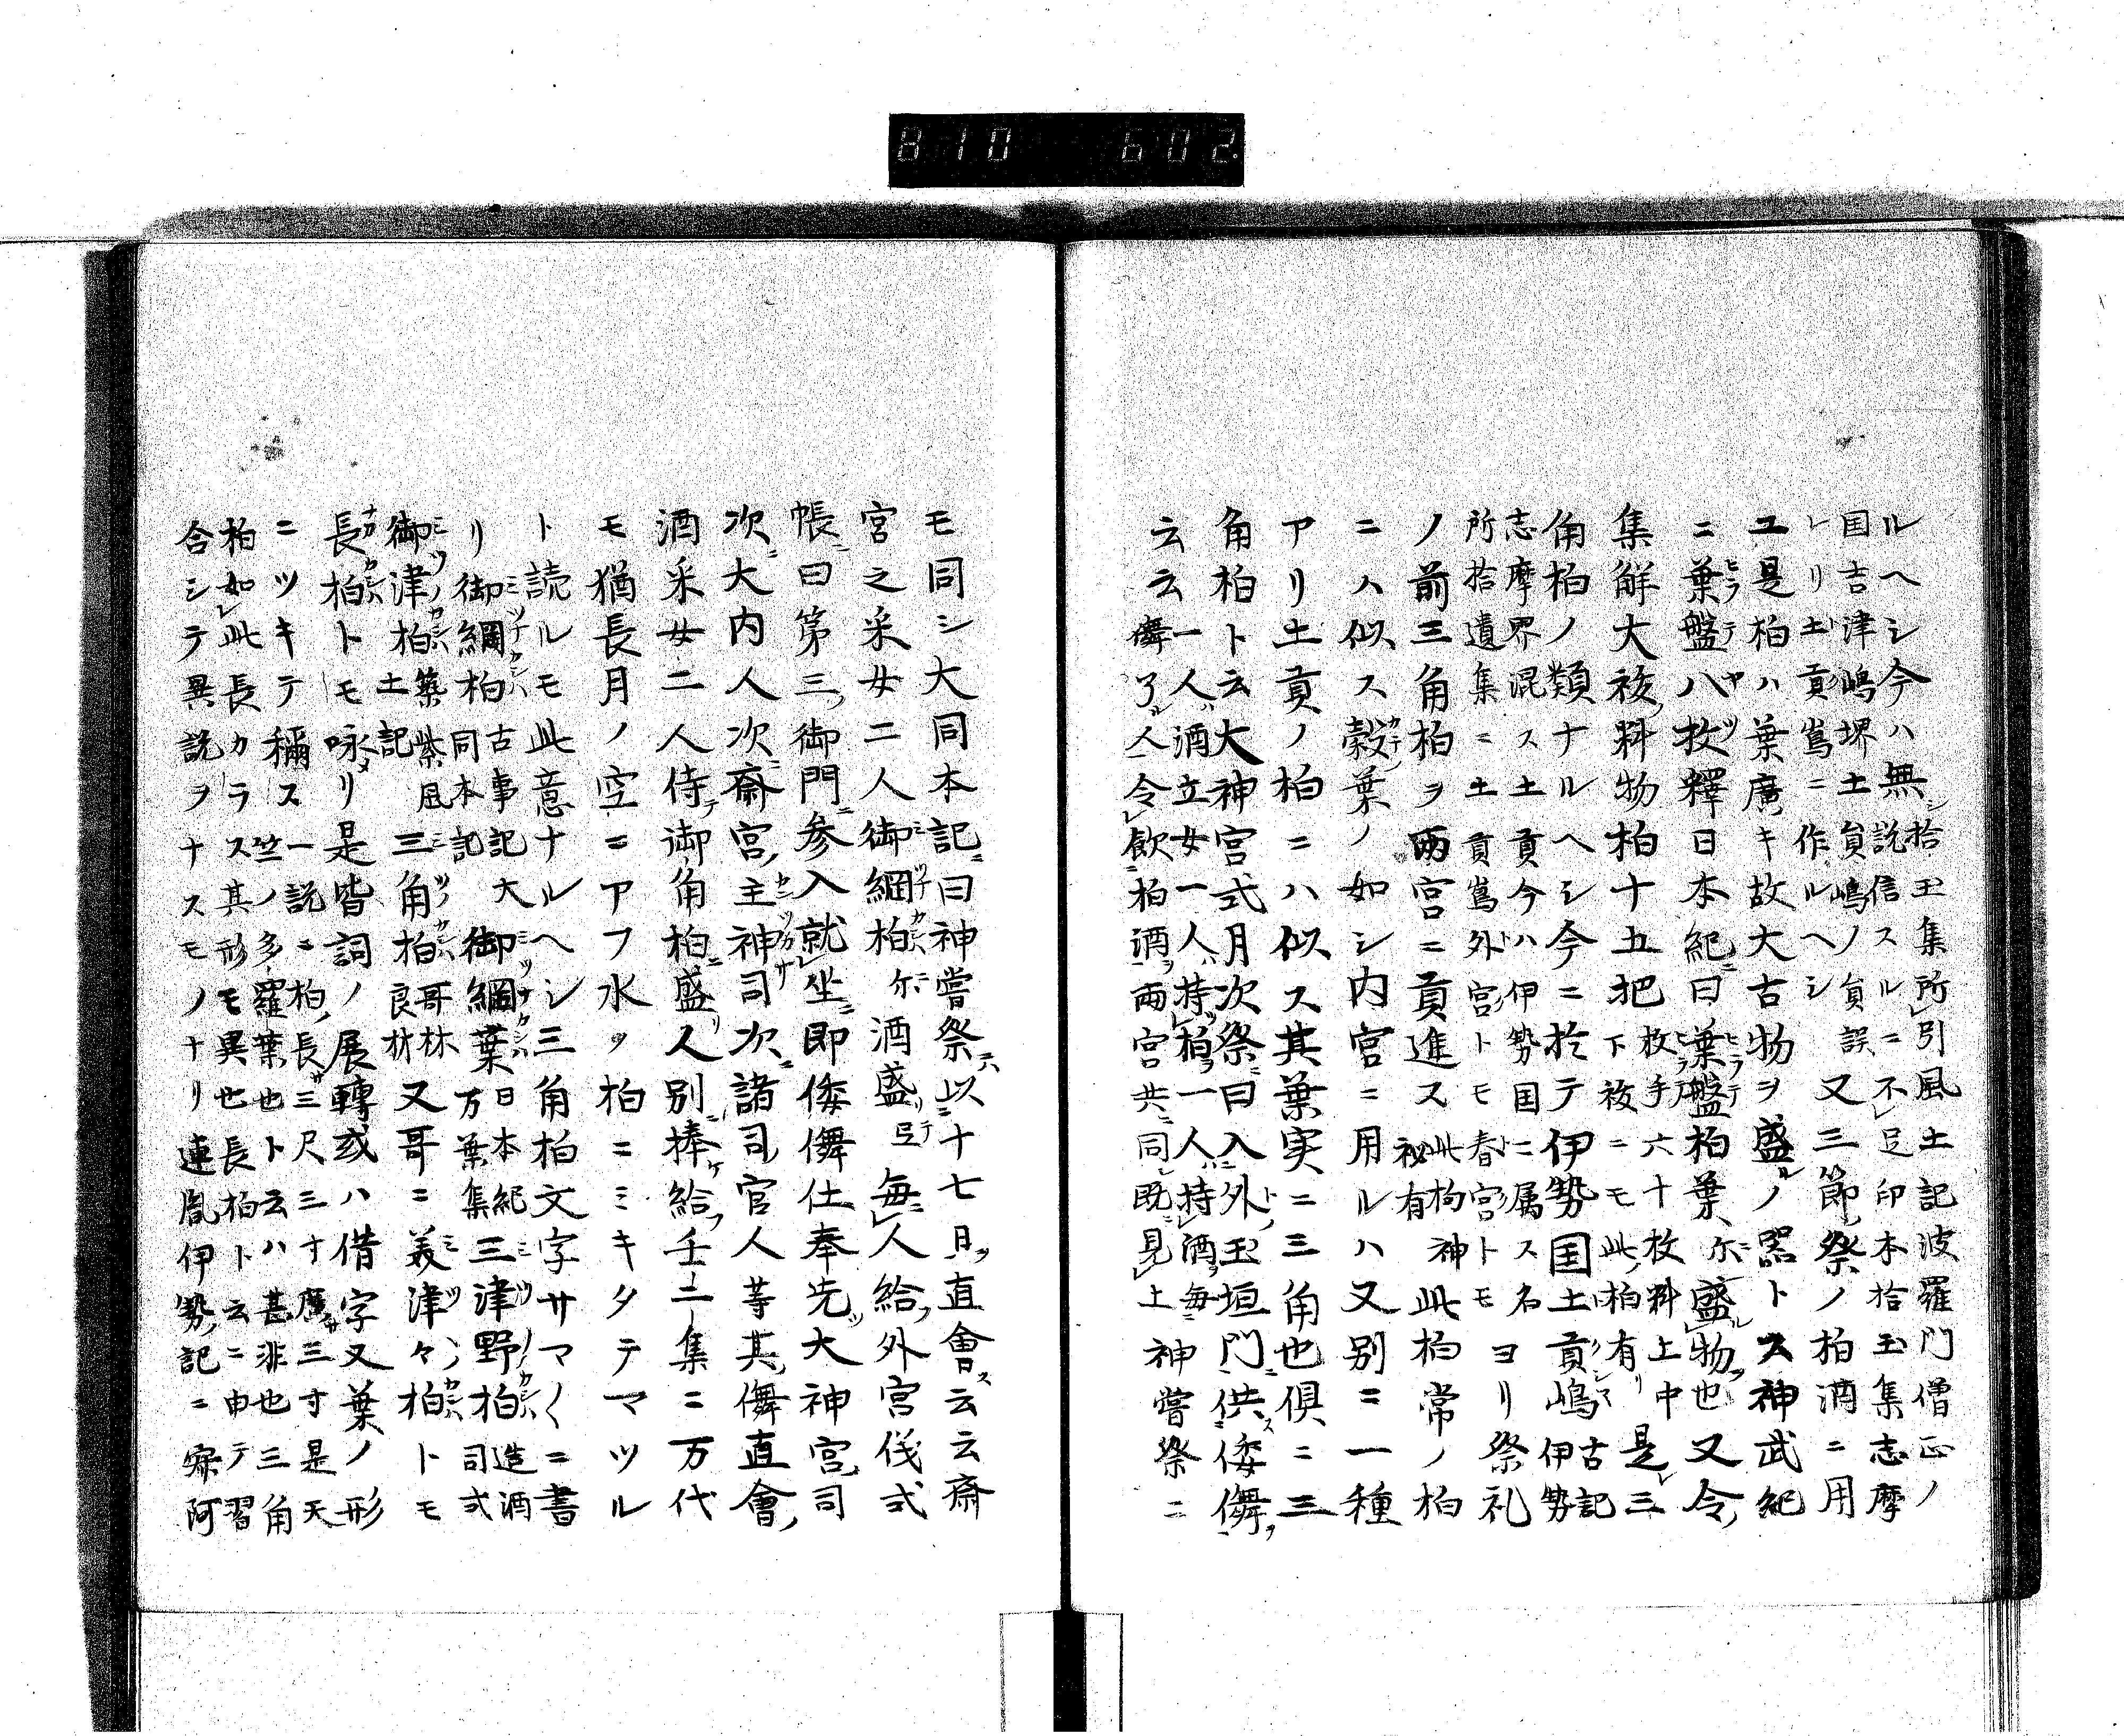 810 602.
ルヘシ今ハ無シ拾玉集所引風土記波羅門僧正ノ
説信スルニ不足印本拾玉集志摩
国吉津嶋堺土貟嶋ノ貟誤又三節祭ノ柏酒ニ用
レリ土貢嶌ニ作ルヘシ
ユ是柏ハ葉廣キ故大古物ヲ盛ルノ噐トス神武紀
ニ葉盤八枚釋日本紀曰葉盤柏葉尓盛物也又令
集解大祓料物柏十五把枚手六十枚料上中
下祓ニモ此柏有リ是三
角柏ノ類ナルヘシ今ニ於テ伊勢国土貢嶋古記
伊勢
志摩界混ス土貢今ハ伊勢国ニ属ス名ヨリ祭礼
所拾遺集ニ土貢嶌外宮トモ春宮トモ
ノ前三角柏ヲ両宮ニ貢進ス此拘神
秘有此柏常ノ柏
ニハ似ス穀葉ノ如シ内宮ニ用ルハ又別ニ一種
アリ土貢ノ柏ニハ似ス其葉実ニ三角也倶ニ三
角柏ト云大神宮式月次祭曰入外玉垣門供倭儛
云云一人酒立女一人持柏一人持酒毎
儛了人令飲柏酒両宮共同既見上神嘗祭ニ
モ同シ大同本記曰神嘗祭以十七日直會云云斎
宮之采女二人御綱柏尓酒盛弖毎人給外宮儀式
帳曰第三御門参入就坐即倭儛仕奉先大神宮司
次大内人次斎宮主神司次諸司官人等其儛直會
酒采女二人侍御角柏盛人別捧給壬二集ニ万代
モ猶長月ノ空ニアフ水ヲ柏ニミキタテマツル
ト読ルモ此意ナルヘシ三角柏文字サマ〱ニ書
リ御綱柏古事記大
同本記御綱葉日本紀
万葉集三津野柏造酒
司式
御津柏築紫風
土記三角柏哥林
良材又哥ニ美津々柏トモ
長柏トモ咏リ是皆詞ノ展轉或ハ借字又葉ノ形
ニツキテ稱ス一説ニ柏長三尺三寸廣三寸是天
竺ノ多羅葉也ト云ハ甚非也三角
柏如此長カラス其形モ異也長柏ト云ニ申テ習
合シテ異説ヲナスモノナリ連胤伊勢記ニ寂阿